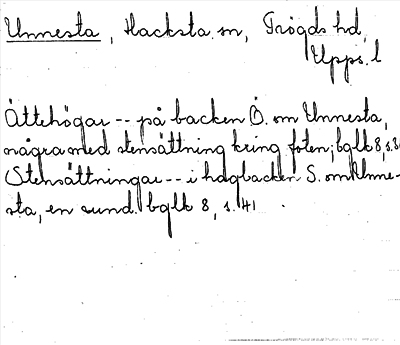 Unnesta, Hacksta sn, Trögds hd,
Upps. l
Ättehögar -- på backen Ö. om Unnesta,
några med stensättning kring foten; bglk 8, s.
Stensättningar -- i hagbacken S. om Unne-
sta, en rund. bglk 8, s. 41.